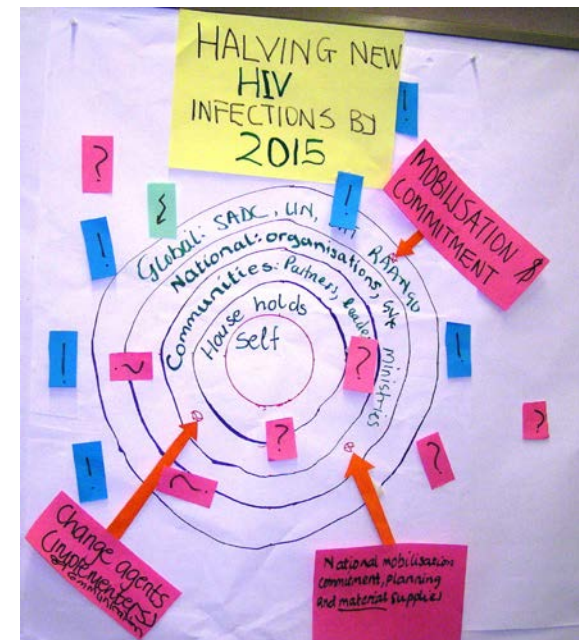 HALVING NEW
HIV
INFECTIONS BY
2015
!
?
!
!
MOBILISATION &
COMMITMENT
Global: SADC, UN,
National: organisations, Gvt ministries
Communities: Partners, leade
House holds
Self
!
!
?
?
?
?
!
Change agents
(implementers)
National mobilisation
commitment, planning
and material supplies